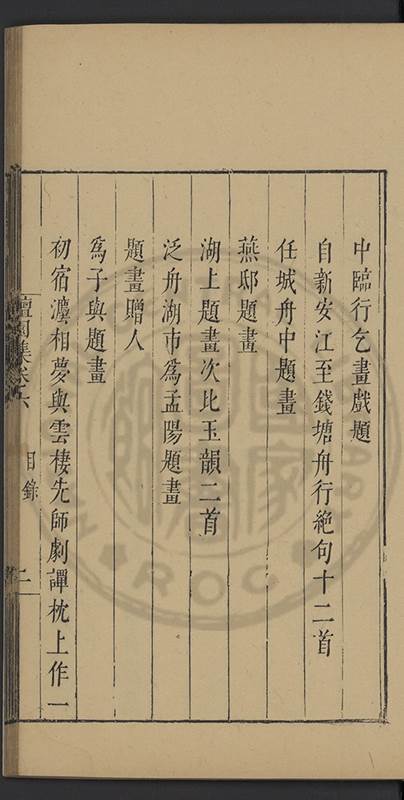 中臨行乞畫戲題
自新安江至錢塘舟行絕句十二首
任城舟中題畫
燕邸題畫
湖上題畫次比玉韻二首
泛舟湖市為孟陽題畫
題畫贈人
為子與題畫
初宿瀍相夢與雲棲先師劇譚枕上作一
檀園集卷六
目錄
二